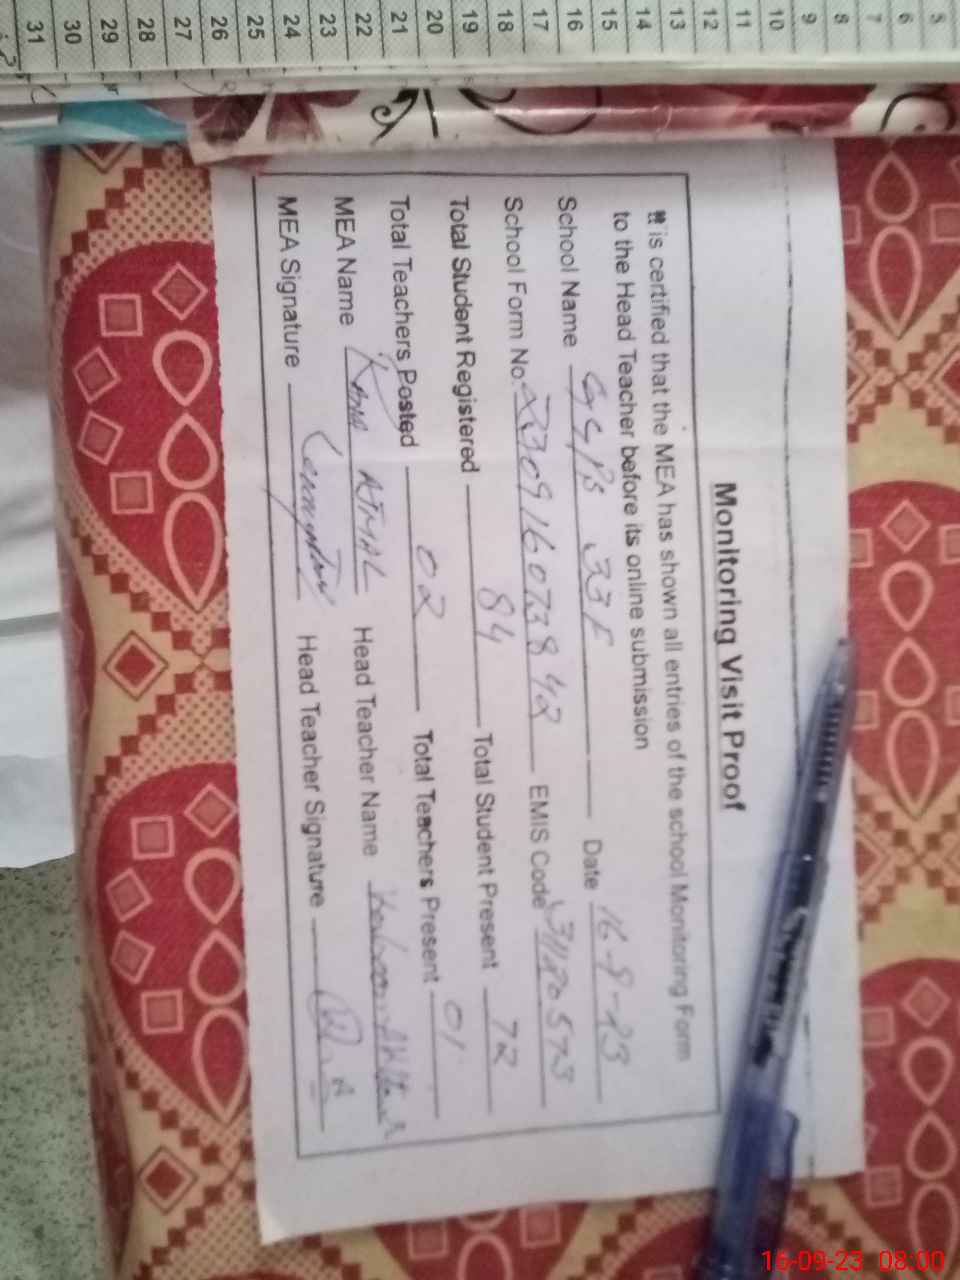 Monitoring Visit Proof
It is certified that the MEA has shown all entries of the school Monitoring Form
to the Head Teacher before its online submission
School Name GGPS 33F Date 16-9-23
School Form No. 230916073842 EMIS Code 31120573
Total Student Registered 84 Total Student Present 72
Total Teachers Posted 02 Total Teachers Present 01
MEA Name AJMAL Head Teacher Name
MEA Signature Head Teacher Signature
5
6
7
8
9
10
11
12
13
14
15
16
17
18
19
20
21
22
23
24
25
26
27
28
29
30
31
16-09-23 08:00